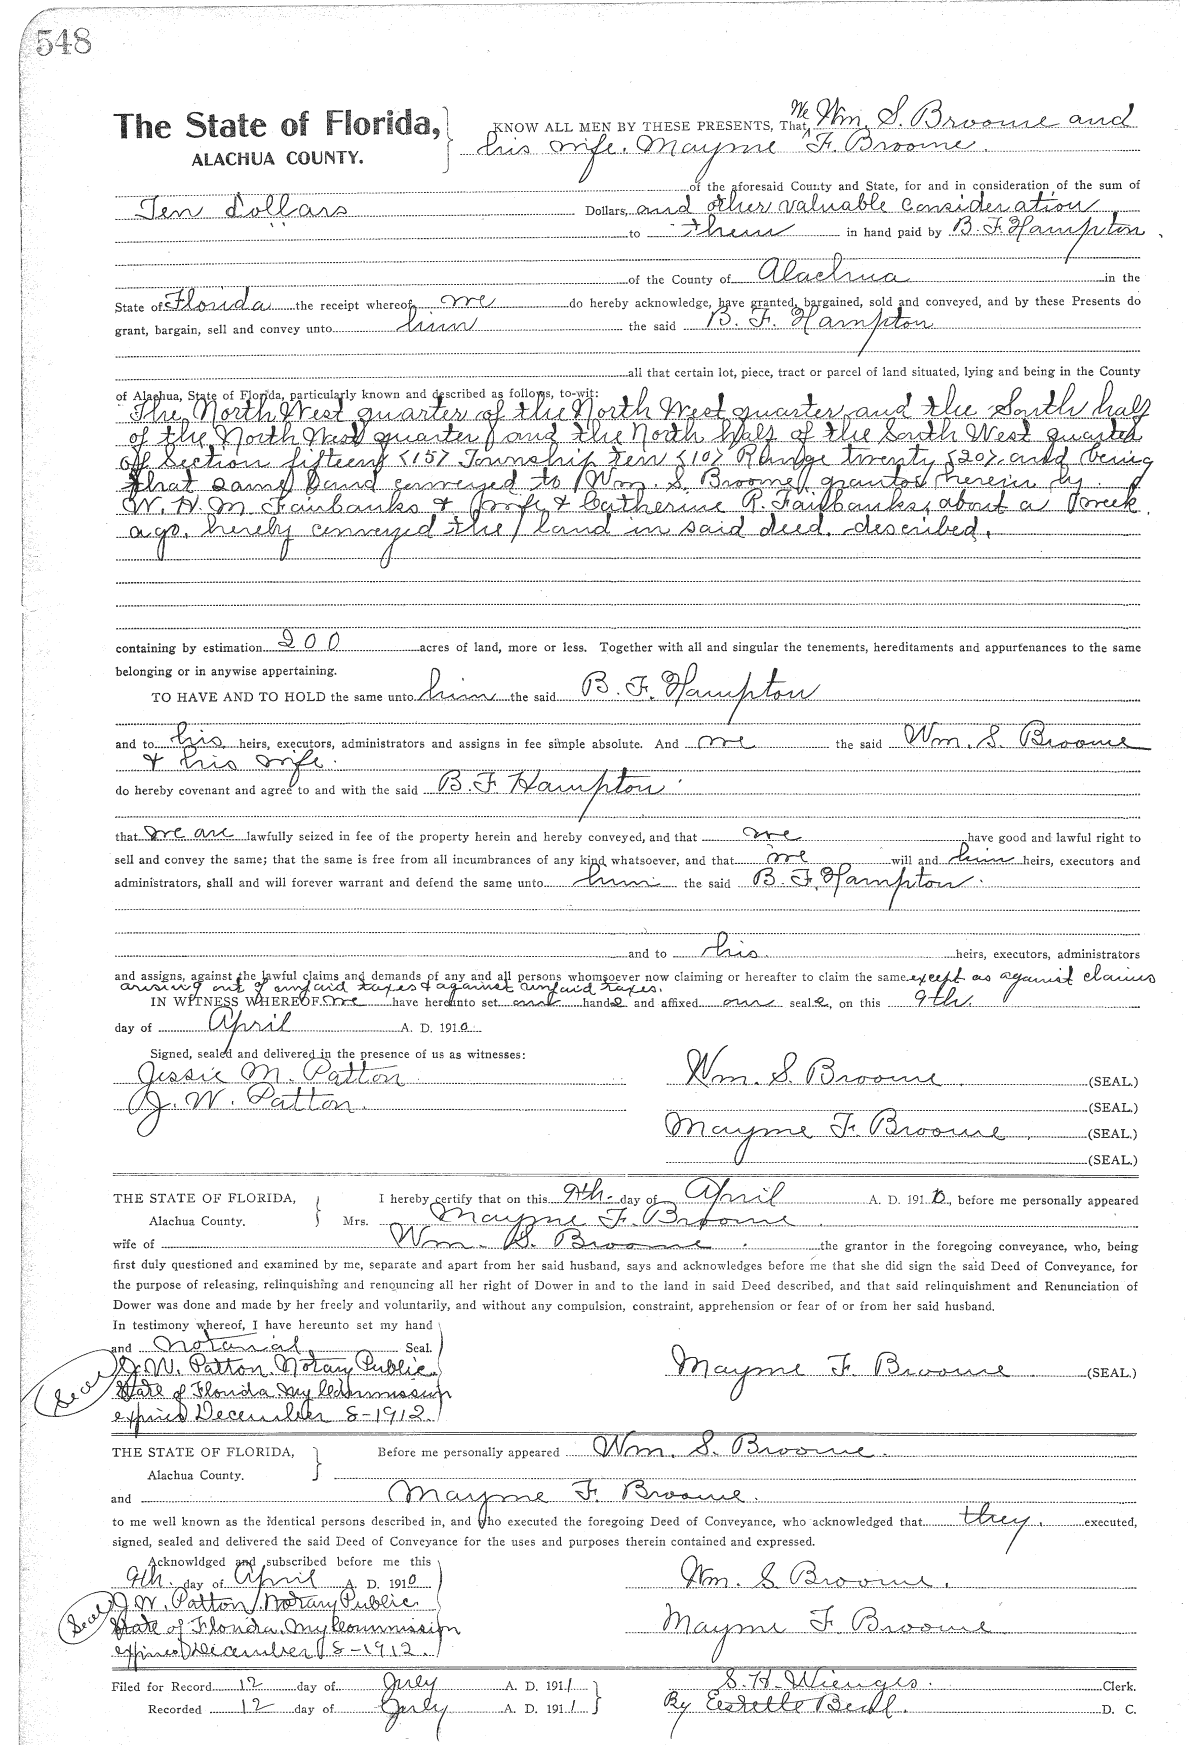 548
The State of Florida,
ALACHUA COUNTY.
KNOW ALL MEN BY THESE PRESENTS, That We Wm. S. Broome and
his wife. Mayme F. Broome.
of the aforesaid County and State, for and in consideration of the sum of
Ten Dollars Dollars, and other valuable consideration
to them in hand paid by B. F. Hampton,
of the County of Alachua in the
State of Florida the receipt whereof we do hereby acknowledge, have granted, bargained, sold and conveyed, and by these Presents do
grant, bargain, sell and convey unto him the said B. F. Hampton
all that certain lot, piece, tract or parcel of land situated, lying and being in the County
of Alachua, State of Florida, particularly known and described as follows, to-wit:
The North West quarter of the North West quarter and the South half
of the North West quarter and the North half of the South West quarter
of Section fifteen (15) Township ten (10) Range twenty (20) and being
that same land conveyed to Wm. S. Broome grantor herein by
W. H. M. Fairbanks & wife & Catherine R. Fairbanks, about a week
ago, hereby conveyed the land in said deed, described.
containing by estimation 200 acres of land, more or less. Together with all and singular the tenements, hereditaments and appurtenances to the same
belonging or in anywise appertaining.
TO HAVE AND TO HOLD the same unto him the said B. F. Hampton
and to his heirs, executors, administrators and assigns in fee simple absolute. And we the said Wm. S. Broome
& his wife.
do hereby covenant and agree to and with the said B. F. Hampton
that we are lawfully seized in fee of the property herein and hereby conveyed, and that we have good and lawful right to
sell and convey the same; that the same is free from all incumbrances of any kind whatsoever, and that we will and him heirs, executors and
administrators, shall and will forever warrant and defend the same unto him the said B. F. Hampton.
and to his heirs, executors, administrators
and assigns, against the lawful claims and demands of any and all persons whomsoever now claiming or hereafter to claim the same except as against claims
arising out of unpaid taxes & against unpaid taxes.
IN WITNESS WHEREOF we have hereunto set our hands and affixed our seals, on this 9th.
day of April A. D. 1910
Signed, sealed and delivered in the presence of us as witnesses:
Jessie M. Patton
J. W. Patton.
Wm. S. Broome (SEAL.)
(SEAL.)
Mayme F. Broome (SEAL.)
(SEAL.)
THE STATE OF FLORIDA,
Alachua County.
I hereby certify that on this 9th. day of April A. D. 1910, before me personally appeared
Mrs. Mayme F. Broome
wife of Wm. S. Broome the grantor in the foregoing conveyance, who, being
first duly questioned and examined by me, separate and apart from her said husband, says and acknowledges before me that she did sign the said Deed of Conveyance, for
the purpose of releasing, relinquishing and renouncing all her right of Dower in and to the land in said Deed described, and that said relinquishment and Renunciation of
Dower was done and made by her freely and voluntarily, and without any compulsion, constraint, apprehension or fear of or from her said husband.
In testimony whereof, I have hereunto set my hand
and notarial Seal.
Seal J. W. Patton. Notary Public
State of Florida. My Commission
expires December 8-1912.
Mayme F. Broome (SEAL.)
THE STATE OF FLORIDA,
Alachua County.
Before me personally appeared Wm. S. Broome.
and Mayme F. Broome.
to me well known as the identical persons described in, and who executed the foregoing Deed of Conveyance, who acknowledged that they executed,
signed, sealed and delivered the said Deed of Conveyance for the uses and purposes therein contained and expressed.
Acknowldged and subscribed before me this
9th. day of April A. D. 1910
Seal J. W. Patton Notary Public
State of Florida. My Commission
expires December 8-1912.
Wm. S. Broome.
Mayme F. Broome
Filed for Record 12 day of July A. D. 1911
Recorded 12 day of July A. D. 1911
S. H. Wienges. Clerk.
By Estelle Bell. D. C.